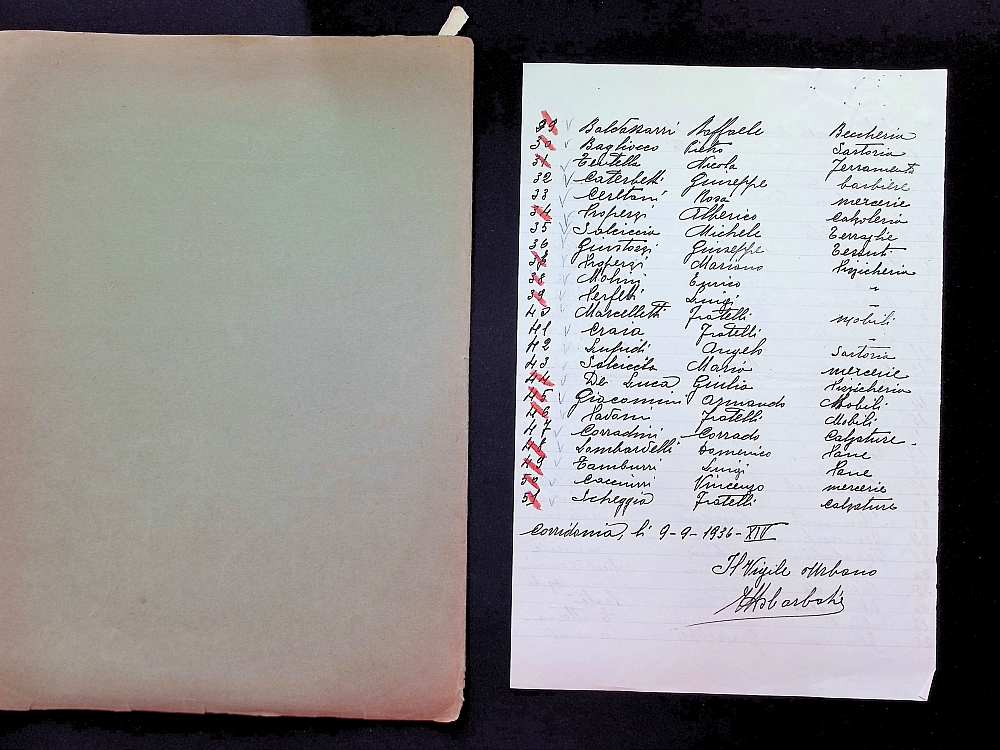 29 Baldassarri Raffaele Beccheria
30 Bagliocco Pietro Sartoria
31 Tentella Nicola Ferramenta
32 Caterbetti Giuseppe barbiere
33 Cerltani Rosa mercerie
34 Properzi Alberico Calzoleria
35 Salciccia Michele Terraglie
36 Giustozzi Giuseppe Tessuti
37 Properzi Mariano Pizzicheria
38 Molini Enrico "
39 Perfetti Luigi "
40 Marcelletti Fratelli mobili
41 Craia Fratelli "
42 Lupidi Angelo Sartoria
43 Salciccia Maria mercerie
44 De Luca Giulia Pizzicheria
45 Giacomini Armando Mobili
46 Padoni Fratelli Mobili
47 Corradini Corrado Calzature
48 Lombardelli Domenico Pane
49 Tamburri Luigi Pane
50 Cacciurri Vincenzo mercerie
51 Scheggia Fratelli Calzature
Corridonia, li 9-9-1936-XIV
Il Vigile Urbano